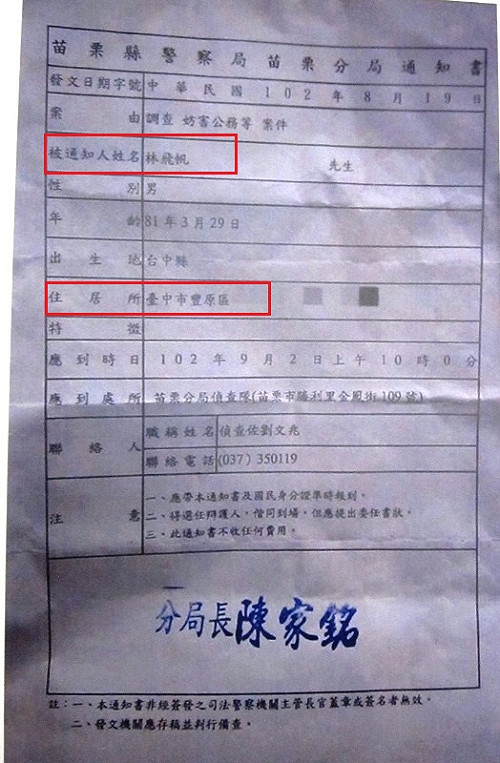 苗栗縣警察局苗栗分局通知書
發文日期字號 中華民國 102 年 8 月 19 日
案由 調查 妨害公務等 案件
被通知人姓名 林飛帆 先生
性別 男
年齡 81年3月29日
出生地 台中縣
住居所 臺中市豐原區
特徵
應到時日 102 年 9 月 2 日上午 10 時 0 分
應到處所 苗栗分局偵查隊(苗栗市勝利里金鳳街109號)
聯絡人 職稱姓名 偵查佐劉文兆
聯絡電話 (037)350119
注意 一、應帶本通知書及國民身分證準時報到。
二、得選任辯護人,偕同到場,但應提出委任書狀。
三、此通知書不收任何費用。
分局長陳家銘
註:一、本通知書非經簽發之司法警察機關主管長官蓋章或簽名者無效。
二、發文機關應存稿並判行備查。